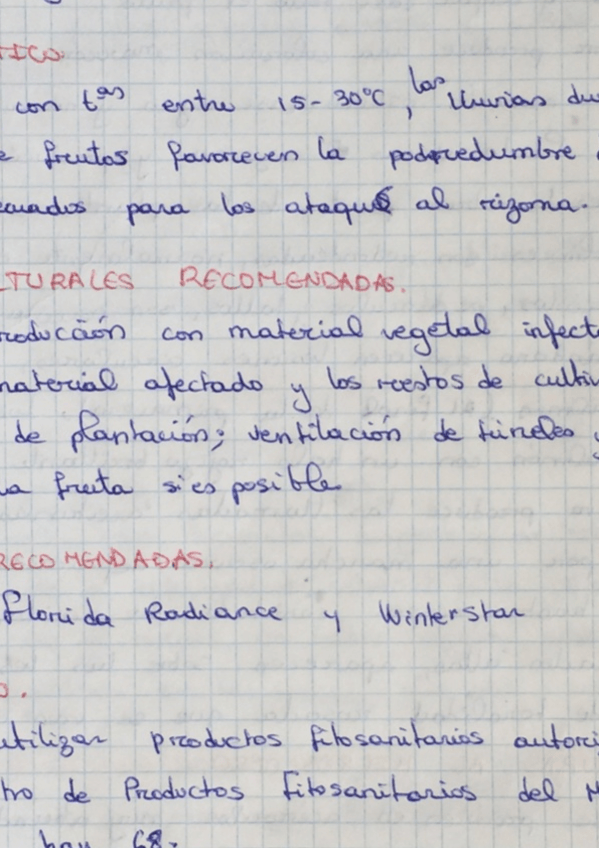 TICO
con tªs entre 15-30ºC, las lluvias du
e frutos favorecen la podredumbre
cuados para los ataques al rizoma.
LTURALES RECOMENDADAS.
roducción con material vegetal infect
material afectado y los restos de cultiv
de plantación; ventilación de túneles y
a fruta si es posible
RECOMENDADAS.
Florida Radiance y Winterstar
O.
utilizar productos fitosanitarios autori
tro de Productos Fitosanitarios del M
hay 68.